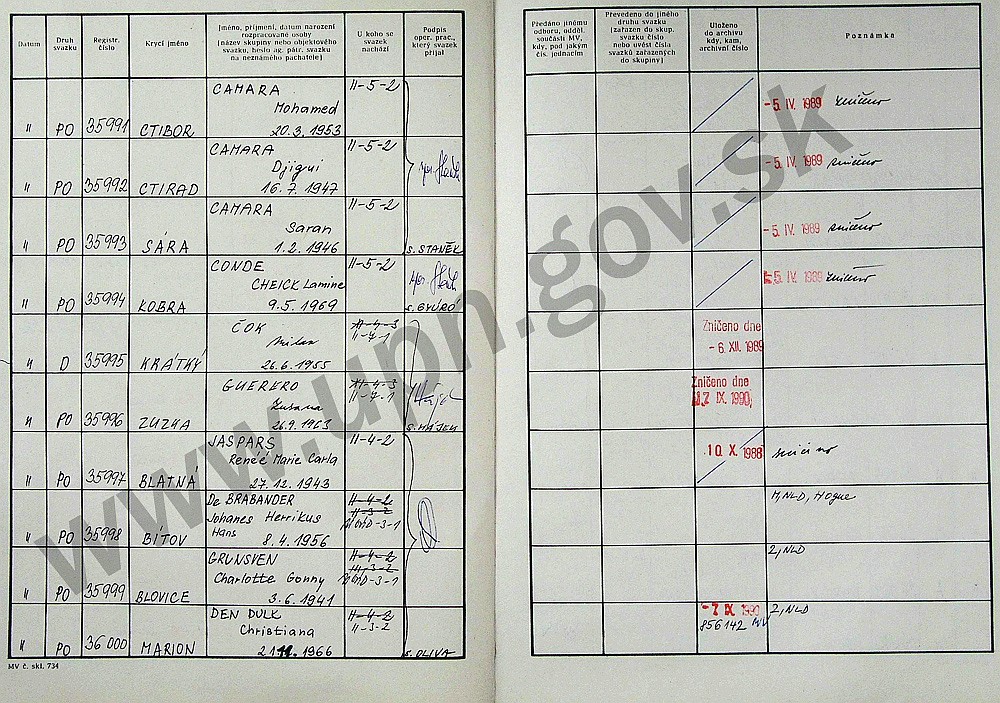 Datum
Druh
svazku
Registr.
číslo
Krycí jméno
Jméno, příjmení, datum narození
rozpracované osoby
(název skupiny nebo objektového
svazku, heslo ag. pátr. svazku
na neznámého pachatele)
U koho se
svazek
nachází
Podpis
oper. prac.,
který svazek
přijal
Předáno jinému
odboru, odděl.
součásti MV,
kdy, pod jakým
čís. jednacím
Převedeno do jiného
druhu svazku
(zařazen do skup.
svazku číslo
nebo uvést čísla
svazků zařazených
do skupiny)
Uloženo
do archivu
kdy, kam,
archivní číslo
Poznámka
CAMARA II-5-2
Mohamed
" PO 35991 CTIBOR 20.3.1953
-5. IV. 1989 zničeno
CAMARA II-5-2
Djigui
" PO 35992 CTIRAD 16.7.1947
-5. IV. 1989 zničeno
CAMARA II-5-2
Saran
" PO 35993 SÁRA 1.2.1946 s. STANĚK
-5. IV. 1989 zničeno
CONDE II-5-2
CHEICK Lamine
" PO 35994 KOBRA 9.5.1969 s. GYÜRÓ
-5. IV. 1989 zničeno
ČOK II-4-3
Milan II-7-1
" D 35995 KRÁTKÝ 26.6.1955
Zničeno dne
-6. XII. 1989
GUERERO II-4-3
Zuzana II-7-1
" PO 35996 ZUZKA 26.9.1963 s. HÁJEK
Zničeno dne
17 IX. 1990
JASPARS II-4-2
Reneé Marie Carla
" PO 35997 BLATNÁ 27.12.1943
10. X. 1988 zničeno
De BRABANDER II-4-2
Johanes Herrikus II-3-2
Hans
" PO 35998 BÍTOV 8.4.1956
NLD, Hogue
GRUNSVEN II-4-2
Charlotte Gonny II-3-2
" PO 35999 BLOVICE 3.6.1941
2, NLD
DEN DULK II-4-2
Christiana II-3-2
" PO 36000 MARION 21.11.1966 s. OLIVA
-7. IX. 1990 2, NLD
856142 MV
MV č. skl. 734
www.upn.gov.sk